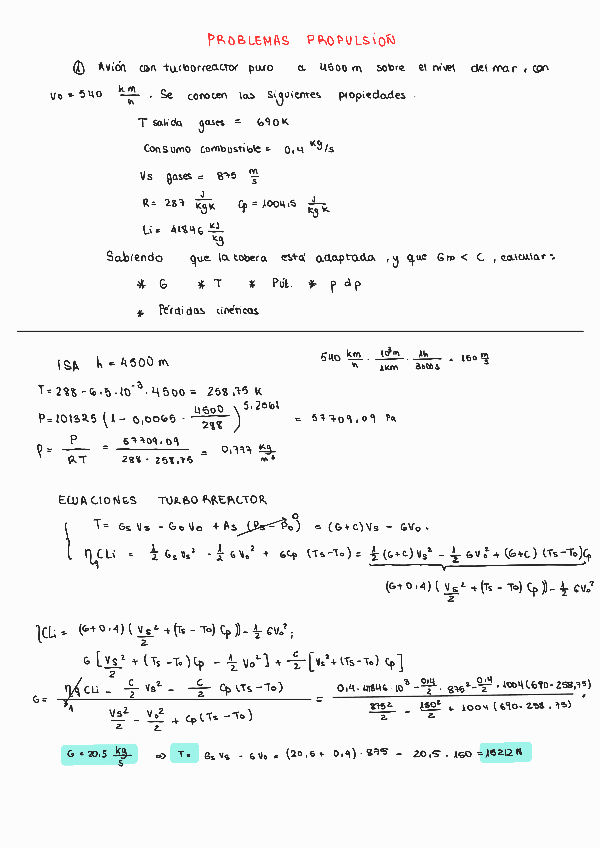 PROBLEMAS PROPULSIÓN
① Avión con turborreactor puro a 4500 m sobre el nivel del mar, con
Vo = 540 km/h. Se conocen las siguientes propiedades.
T salida gases = 690 K
Consumo combustible = 0,4 kg/s
Vs gases = 875 m/s
R = 287 J/kgK Cp = 1004,5 J/kgK
Li = 41846 kJ/kg
Sabiendo que la tobera está adaptada, y que Gm < C, calcular:
* G * T * Pút. * p dp
* Pérdidas cinéticas
ISA h = 4500 m 540 km/h · 10³m/1km · 1h/3600s = 150 m/s
T = 288 - 6.5·10⁻³ · 4500 = 258.75 K
P = 101325 (1 - 0,0065 · 4500/288)^5,2561 = 57709.09 Pa
ρ = P/RT = 57709.09/288·258.75 = 0,777 kg/m³
ECUACIONES TURBORREACTOR
T = Gs Vs - Go Vo + As (Ps - Po)⁰ = (G+C)Vs - GVo.
ηq CLi = 1/2 Gs Vs² - 1/2 G Vo² + GCp (Ts-To) = 1/2 (G+C) Vs² - 1/2 GVo² + (G+C) (Ts-To)Cp
(G+0.4) (Vs²/2 + (Ts - To) Cp)) - 1/2 GVo²
ηCLi = (G+0.4) (Vs²/2 + (Ts - To) Cp)) - 1/2 GVo²;
G [Vs²/2 + (Ts - To) Cp - 1/2 Vo²] + C/2 [Vs² + (Ts - To) Cp]
G = ηq CLi - C/2 Vs² - C/2 Cp (Ts - To) / Vs²/2 - Vo²/2 + Cp (Ts - To) = 0,4·41846·10³ - 0,4/2 · 875² - 0,4/2 · 1004 (690 - 258,75) / 875²/2 - 150²/2 + 1004 (690 - 258.75)
G = 20,5 kg/s ⇒ T = Gs Vs - G Vo = (20,5 + 0.4) · 875 - 20.5 · 150 = 15212 N